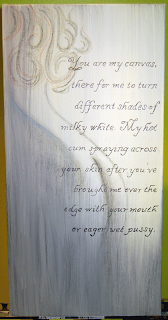 You are my canvas,
there for me to turn
different shades of
milky white. My hot
cum spraying across
your skin after you've
brought me over the
edge with your mouth
or eager wet pussy.